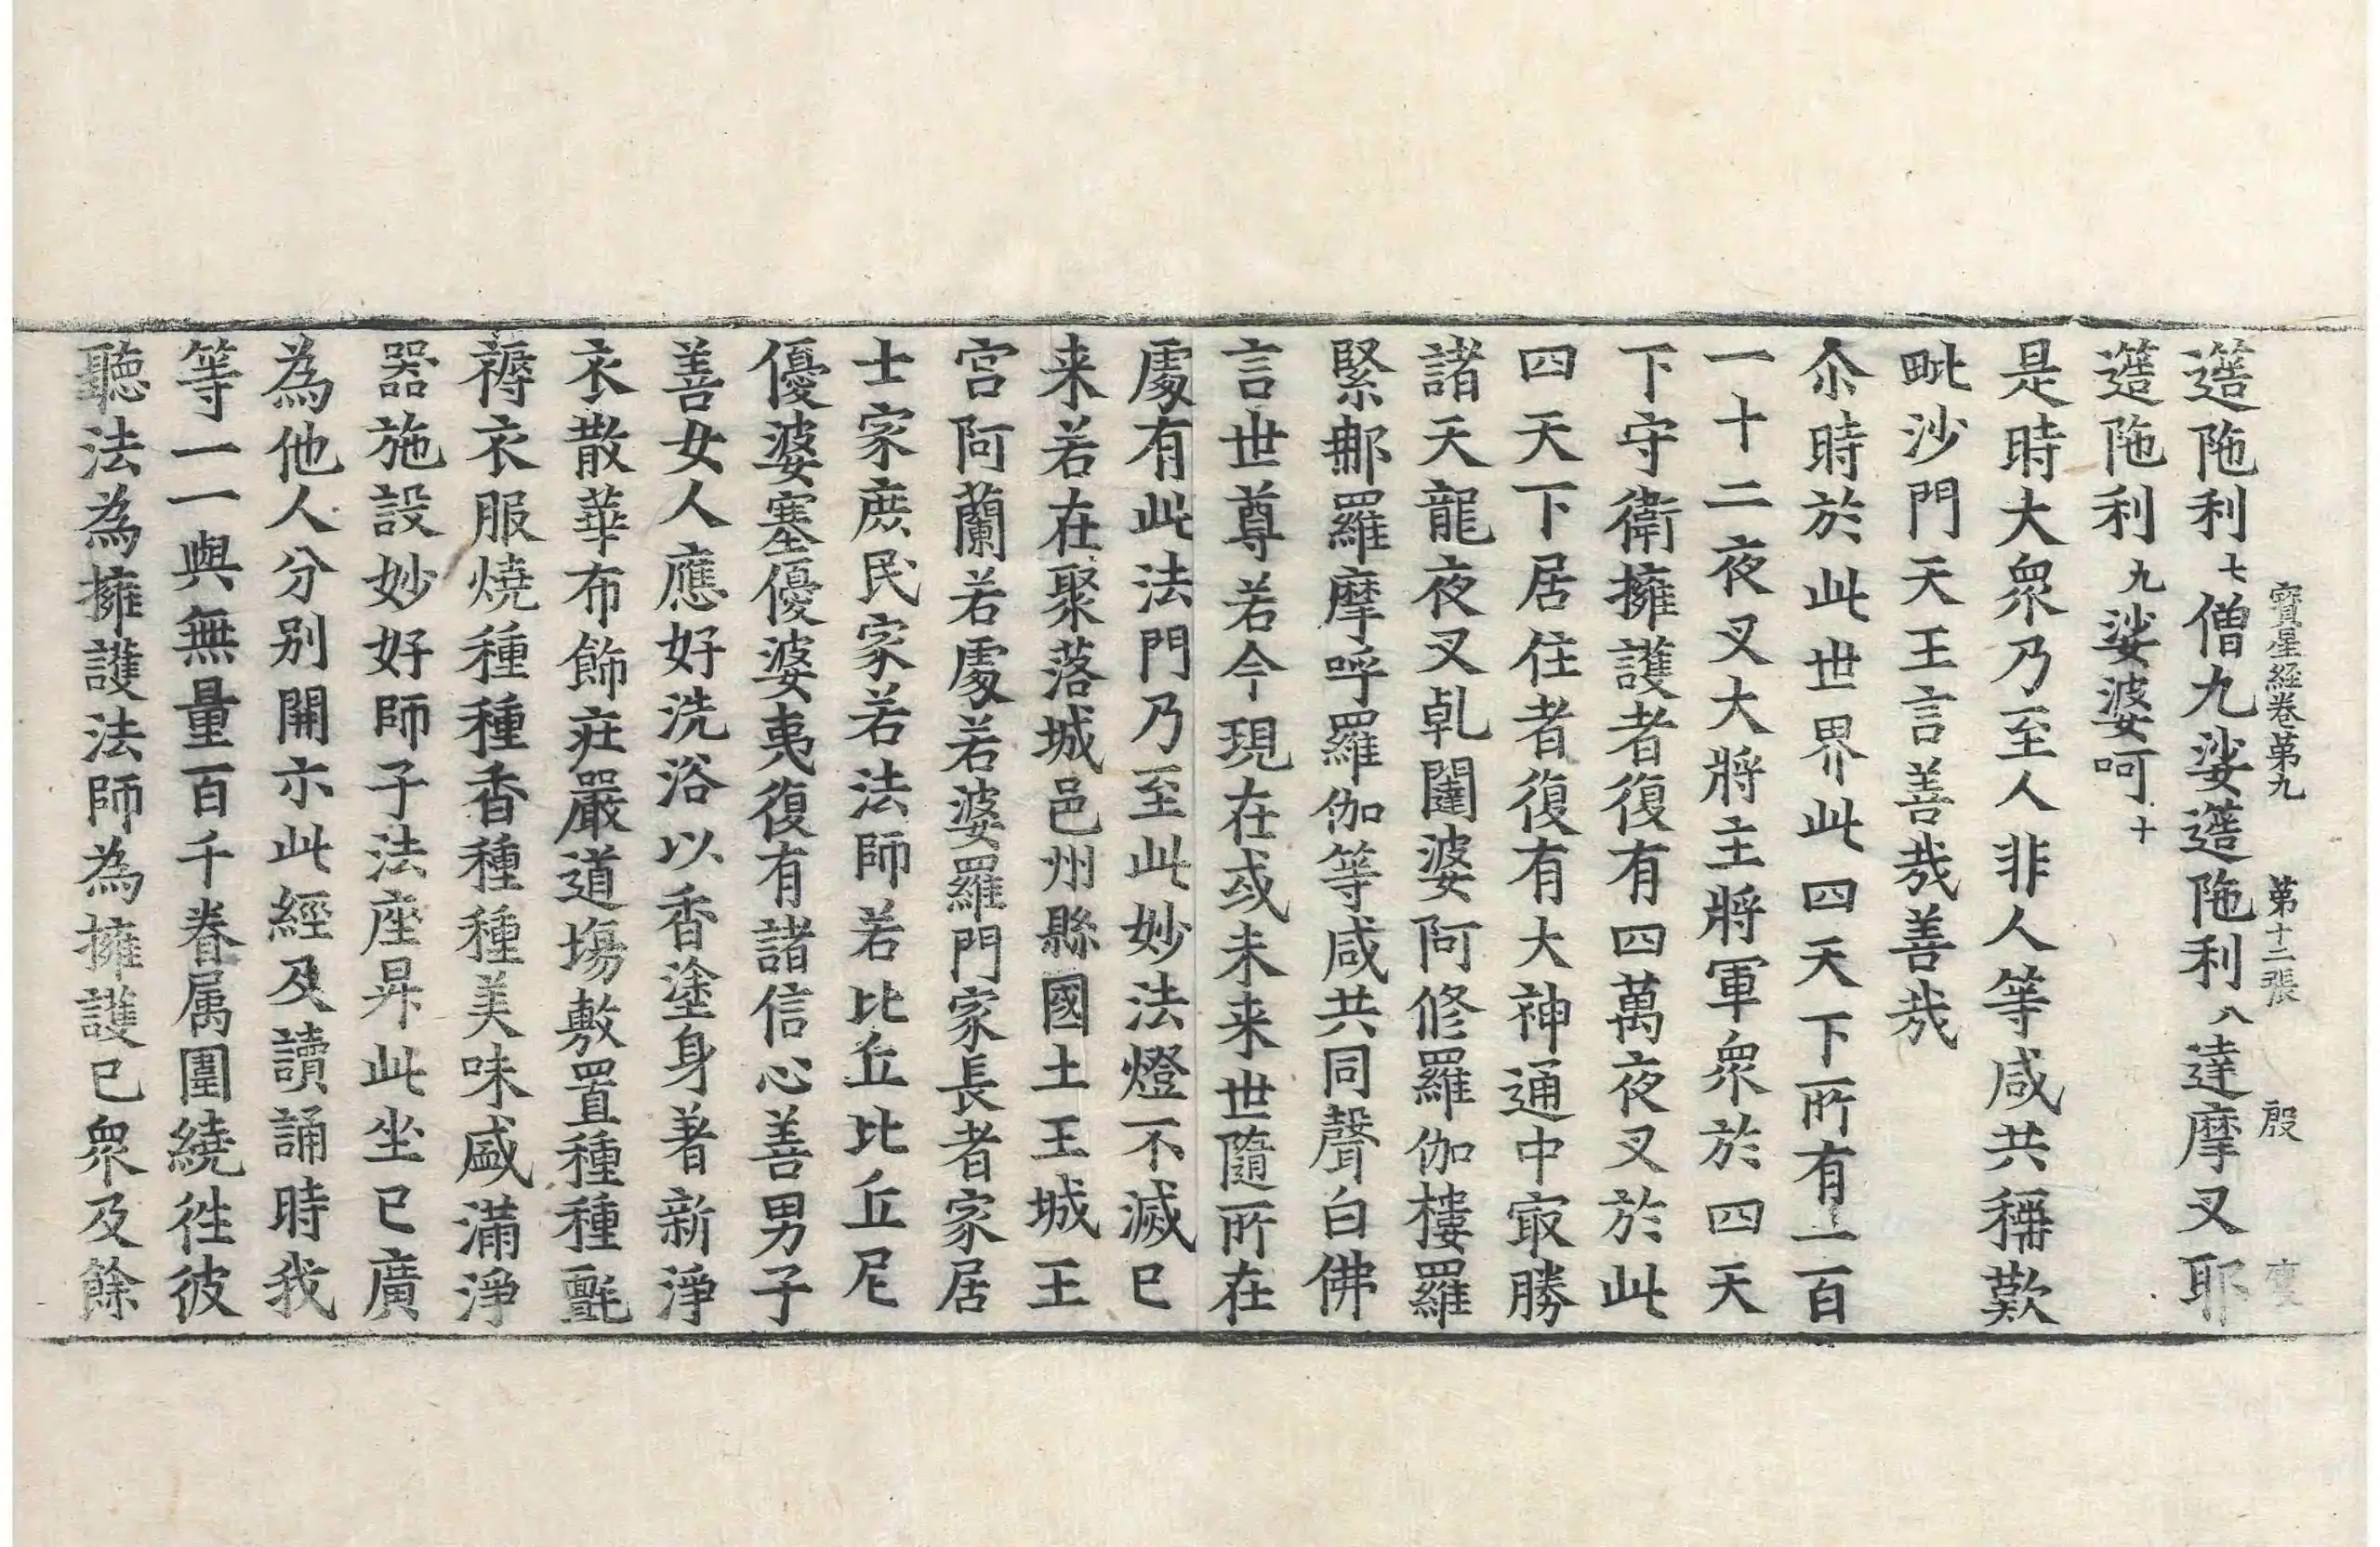 寳星經卷第九　第十二張　殷
薳陁利七僧九娑薳陁利八達摩叉耶
薳陁利九娑婆呵十
是時大衆乃至人非人等咸共稱歎
毗沙門天王言善㢤善㢤
尒時於此世界此四天下所有一百
一十二夜叉大將主將軍衆於四天
下守衛擁護者復有四萬夜叉於此
四天下居住者復有大神通中㝡勝
諸天龍夜叉乹闥婆阿修羅伽樓羅
緊那羅摩呼羅伽等咸共同聲白佛
言世尊若今現在或未来世隨所在
處有此法門乃至此妙法燈不滅已
来若在聚落城邑州縣國土王城王
宮阿蘭若處若婆羅門家長者家居
士家庶民家若法師若比丘比丘尼
優婆塞優婆夷復有諸信心善男子
善女人應好洗浴以香塗身著新淨
衣散華布飾莊嚴道場敷置種種㲲
褥衣服燒種種香種種美味盛滿淨
器施設妙好師子法座昇此坐已廣
為他人分別開示此經及讀誦時我
等一一與無量百千眷属圍繞徃彼
聽法為擁護法師為擁護已衆及餘